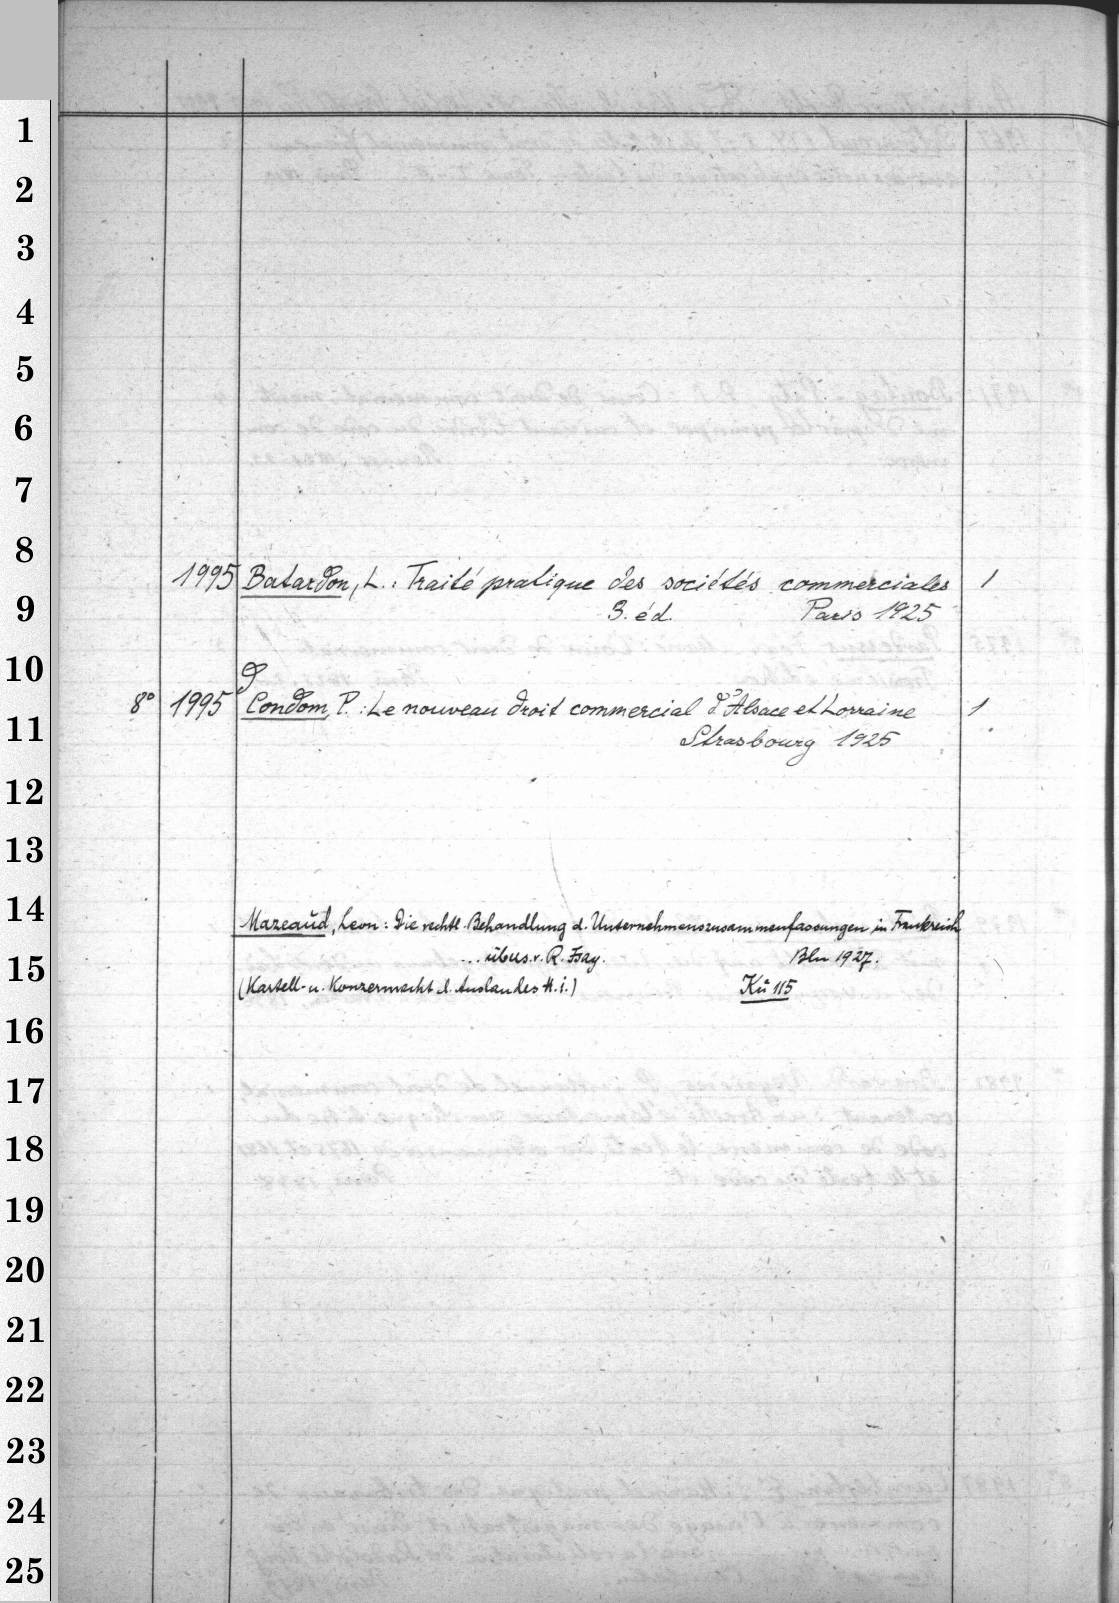 1
2
3
4
5
6
7
8
1995 Batardon, L.: Traité pratique des sociétés commerciales 1
9
3. éd. Paris 1925
10
8° 1995 Condom, P.: Le nouveau droit commercial d'Alsace et Lorraine 1
11
Strasbourg 1925
12
13
14
Mazeaud, Leon: Die rechtl. Behandlung d. Unternehmenszusammenfassungen in Frankreich
15
... übers. v. R. Isay. Bln 1927.
(Kartell- u. Konzernrecht d. Auslandes H. i.) Kü 115
16
17
18
19
20
21
22
23
24
25